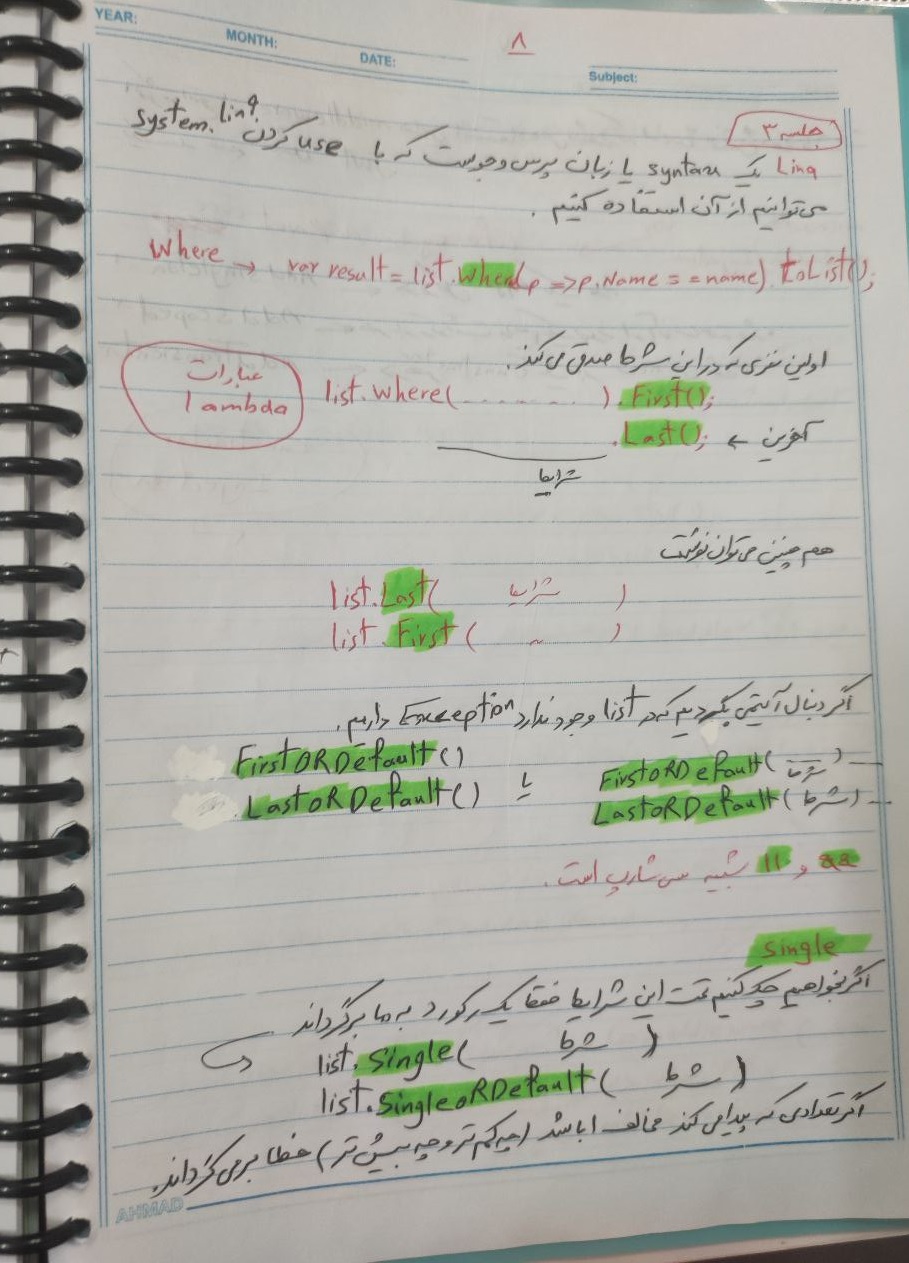 YEAR:
MONTH:
DATE:
۸
Subject:
جلسه ۳
Linq یک syntax یا زبان پرس و جوست که با use کردن system.linq
می‌توانیم از آن استفاده کنیم.
Where → var result = list.Where(p => p.Name == name).toList();
اولین چیزی که در این شرط صدق می‌کند.
عبارات
lambda
list.where( ........ ).First();
آخرین ← .Last();
شرایط
هم چنین می‌توان نوشت
list.Last( شرایط )
list.First ( ~ )
اگر دنبال آیتمی بگردیم که در list وجود ندارد Exception داریم.
FirstORDefault() FirstORDefault( شرط )
LastORDefault() یا LastORDefault( شرط )
&& و || شبیه سی شارپ است.
Single
اگر بخواهیم چک کنیم تحت این شرایط فقط یک رکورد به ما برگرداند
list.Single( شرط )
list.SingleORDefault( شرط )
اگر تعدادی که پیدا می‌کند مخالف ۱ باشد (چه کم تر و چه بیش تر) خطا برمی‌گرداند.
AHMAD